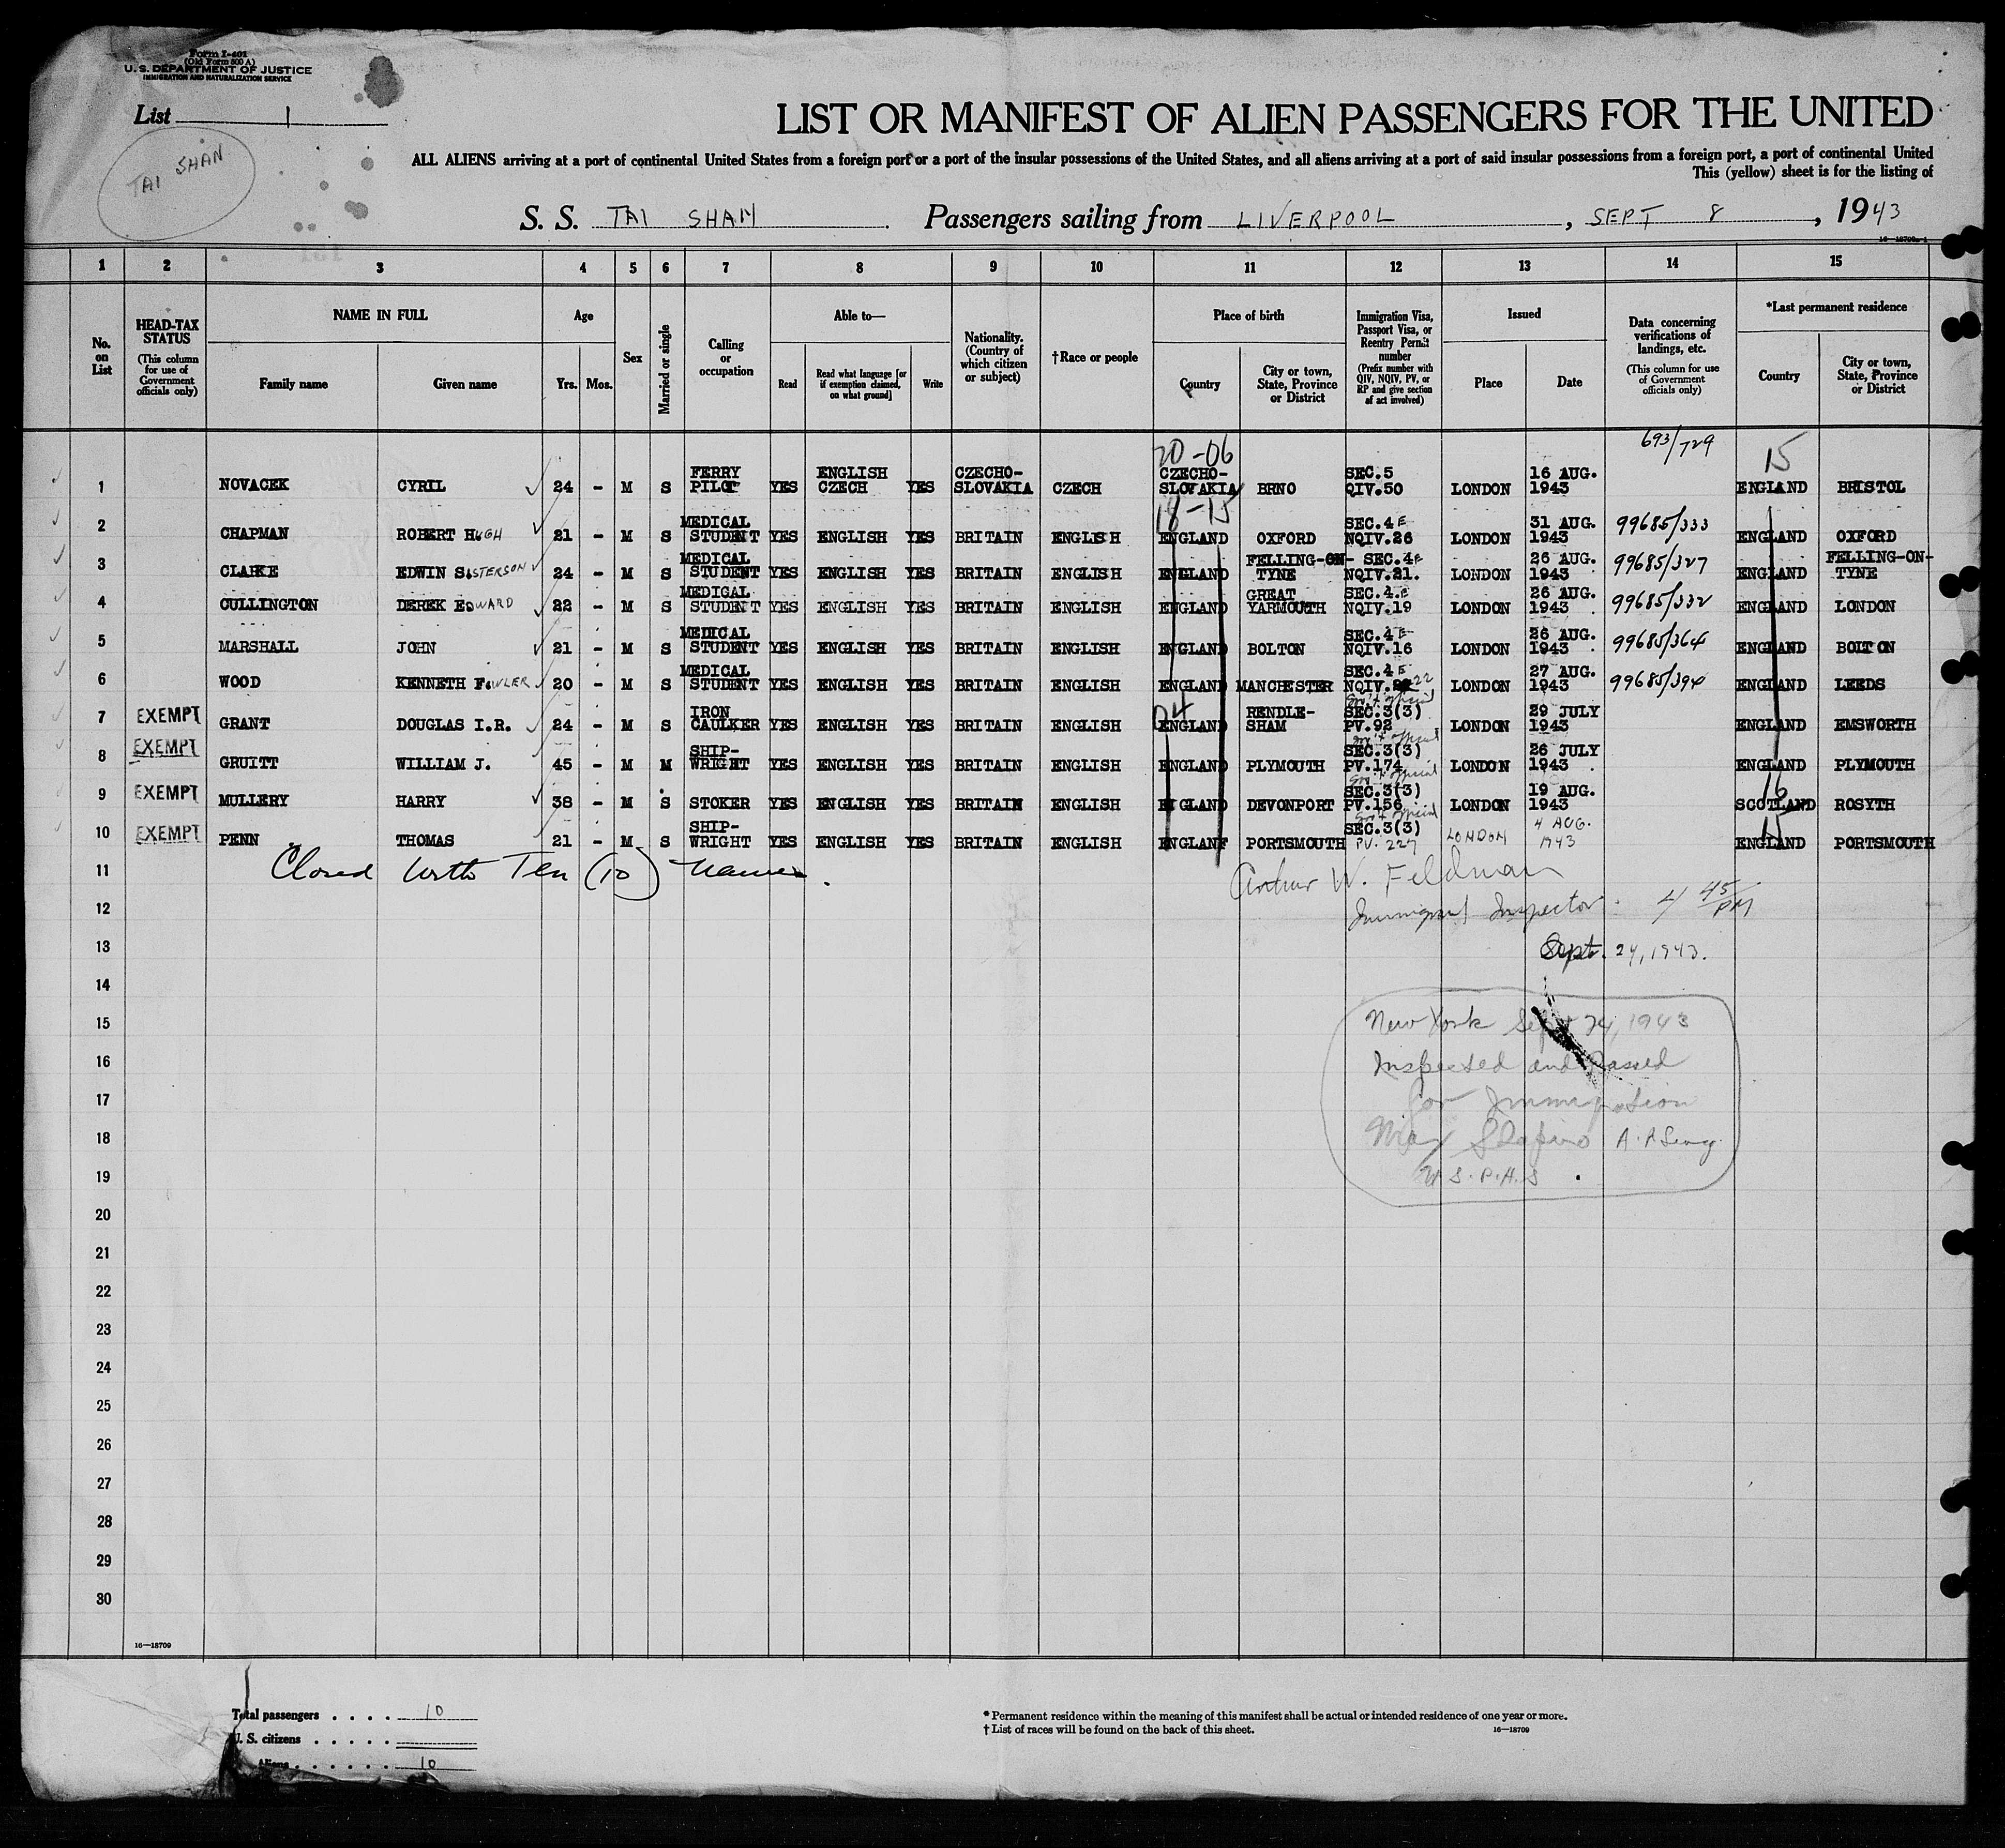 Form I-401
(Old Form 500 A)
U. S. DEPARTMENT OF JUSTICE
IMMIGRATION AND NATURALIZATION SERVICE
List 1
TAI SHAN
LIST OR MANIFEST OF ALIEN PASSENGERS FOR THE UNITED
ALL ALIENS arriving at a port of continental United States from a foreign port or a port of the insular possessions of the United States, and all aliens arriving at a port of said insular possessions from a foreign port, a port of continental United
This (yellow) sheet is for the listing of
S. S. TAI SHAN. Passengers sailing from LIVERPOOL, SEPT 8, 1943
1 2 3 4 5 6 7 8 9 10 11 12 13 14 15
No. on List
HEAD-TAX STATUS (This column for use of Government officials only)
NAME IN FULL Family name Given name
Age Yrs. Mos.
Sex
Married or single
Calling or occupation
Able to— Read Read what language [or if exemption claimed, on what ground] Write
Nationality. (Country of which citizen or subject)
†Race or people
Place of birth Country City or town, State, Province or District
Immigration Visa, Passport Visa, or Reentry Permit number (Prefix number with QIV, NQIV, PV, or RP and give section of act involved)
Issued Place Date
Data concerning verifications of landings, etc. (This column for use of Government officials only)
*Last permanent residence Country City or town, State, Province or District
20-06 693/729 15
1 NOVACEK CYRIL 24 - M S FERRY PILOT YES ENGLISH CZECH YES CZECHO-SLOVAKIA CZECH CZECHO-SLOVAKIA BRNO SEC.5 QIV.50 LONDON 16 AUG. 1943 ENGLAND BRISTOL
18-15
2 CHAPMAN ROBERT HUGH 21 - M S MEDICAL STUDENT YES ENGLISH YES BRITAIN ENGLISH ENGLAND OXFORD SEC.4E NQIV.26 LONDON 31 AUG. 1943 99685/333 ENGLAND OXFORD
3 CLARKE EDWIN SISTERSON 24 - M S MEDICAL STUDENT YES ENGLISH YES BRITAIN ENGLISH ENGLAND FELLING-ON-TYNE SEC.4E NQIV.21. LONDON 26 AUG. 1943 99685/327 ENGLAND FELLING-ON-TYNE
4 CULLINGTON DEREK EDWARD 22 - M S MEDICAL STUDENT YES ENGLISH YES BRITAIN ENGLISH ENGLAND GREAT YARMOUTH SEC.4.E NQIV.19 LONDON 26 AUG. 1943 99685/332 ENGLAND LONDON
5 MARSHALL JOHN 21 - M S MEDICAL STUDENT YES ENGLISH YES BRITAIN ENGLISH ENGLAND BOLTON SEC.4E NQIV.16 LONDON 26 AUG. 1943 99685/364 ENGLAND BOLTON
6 WOOD KENNETH FOWLER 20 - M S MEDICAL STUDENT YES ENGLISH YES BRITAIN ENGLISH ENGLAND MANCHESTER SEC.4E NQIV.22 LONDON 27 AUG. 1943 99685/394 ENGLAND LEEDS
7 EXEMPT GRANT DOUGLAS I.R. 24 - M S IRON CAULKER YES ENGLISH YES BRITAIN ENGLISH 24 ENGLAND RENDLE-SHAM Gov't official SEC.3(3) PV.92 LONDON 29 JULY 1943 ENGLAND EMSWORTH
8 EXEMPT GRUITT WILLIAM J. 45 - M M SHIP-WRIGHT YES ENGLISH YES BRITAIN ENGLISH ENGLAND PLYMOUTH Gov't official SEC.3(3) PV.174 LONDON 26 JULY 1943 ENGLAND PLYMOUTH
9 EXEMPT MULLERY HARRY 38 - M S STOKER YES ENGLISH YES BRITAIN ENGLISH ENGLAND DEVONPORT Gov't official SEC.3(3) PV.156 LONDON 19 AUG. 1943 16 SCOTLAND ROSYTH
10 EXEMPT PENN THOMAS 21 - M S SHIP-WRIGHT YES ENGLISH YES BRITAIN ENGLISH ENGLAND PORTSMOUTH Gov't official SEC.3(3) PV. 227 LONDON 4 AUG. 1943 15 ENGLAND PORTSMOUTH
11 Closed with Ten (10) names. Arthur W. Feldman
12 Immigrant Inspector. 4 45/PM
13 Sept. 24, 1943.
14
15 New York Sept 24, 1943
16 Inspected and Passed
17 for Immigration
18 Max Shapiro A. A Surg.
19 U S. P. H. S
20
21
22
23
24
25
26
27
28
29
30
16—18709
Total passengers . . . . 10
U. S. citizens . . . . .
Aliens . . . . . . 10
* Permanent residence within the meaning of this manifest shall be actual or intended residence of one year or more.
† List of races will be found on the back of this sheet. 16—18709